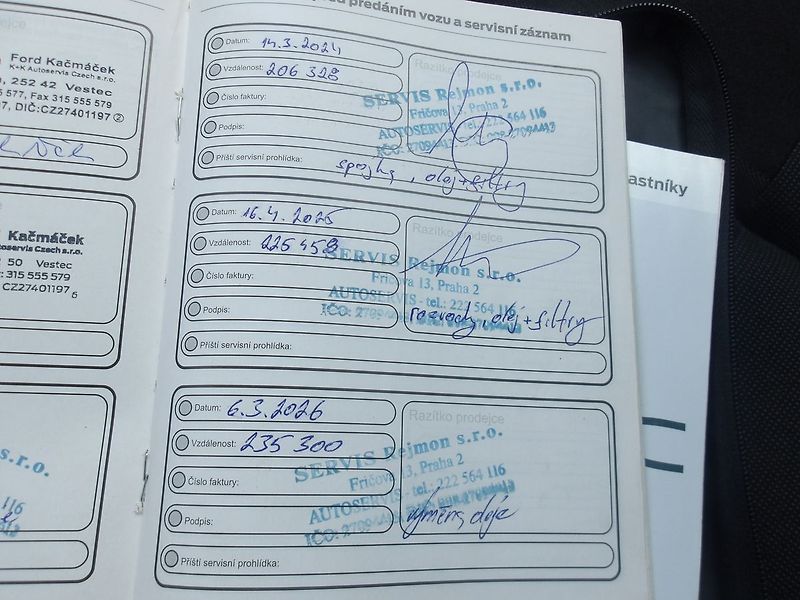 předáním vozu a servisní záznam
Ford Kačmáček
K+K Autoservis Czech s.r.o.
, 252 42 Vestec
577, Fax 315 555 579
97, DIČ:CZ27401197 2
Kačmáček
toservis Czech s.r.o.
50 Vestec
: 315 555 579
CZ27401197 6
s.r.o.
116
Datum: 14.3.2024
Vzdálenost: 206 328
Číslo faktury:
Podpis:
Příští servisní prohlídka:
Razítko prodejce
SERVIS Rejmon s.r.o.
Fričova 13, Praha 2
AUTOSERVIS - tel.: 222 564 116
spojka, olej+filtry
Datum: 16.4.2025
Vzdálenost: 225 458
Číslo faktury:
Podpis:
Příští servisní prohlídka:
Razítko prodejce
SERVIS Rejmon s.r.o.
Fričova 13, Praha 2
AUTOSERVIS - tel.: 222 564 116
rozvody, olej+filtry
Datum: 6.3.2026
Vzdálenost: 235 300
Číslo faktury:
Podpis:
Příští servisní prohlídka:
Razítko prodejce
SERVIS Rejmon s.r.o.
Fričova 13, Praha 2
AUTOSERVIS - tel.: 222 564 116
výměna oleje
astníky